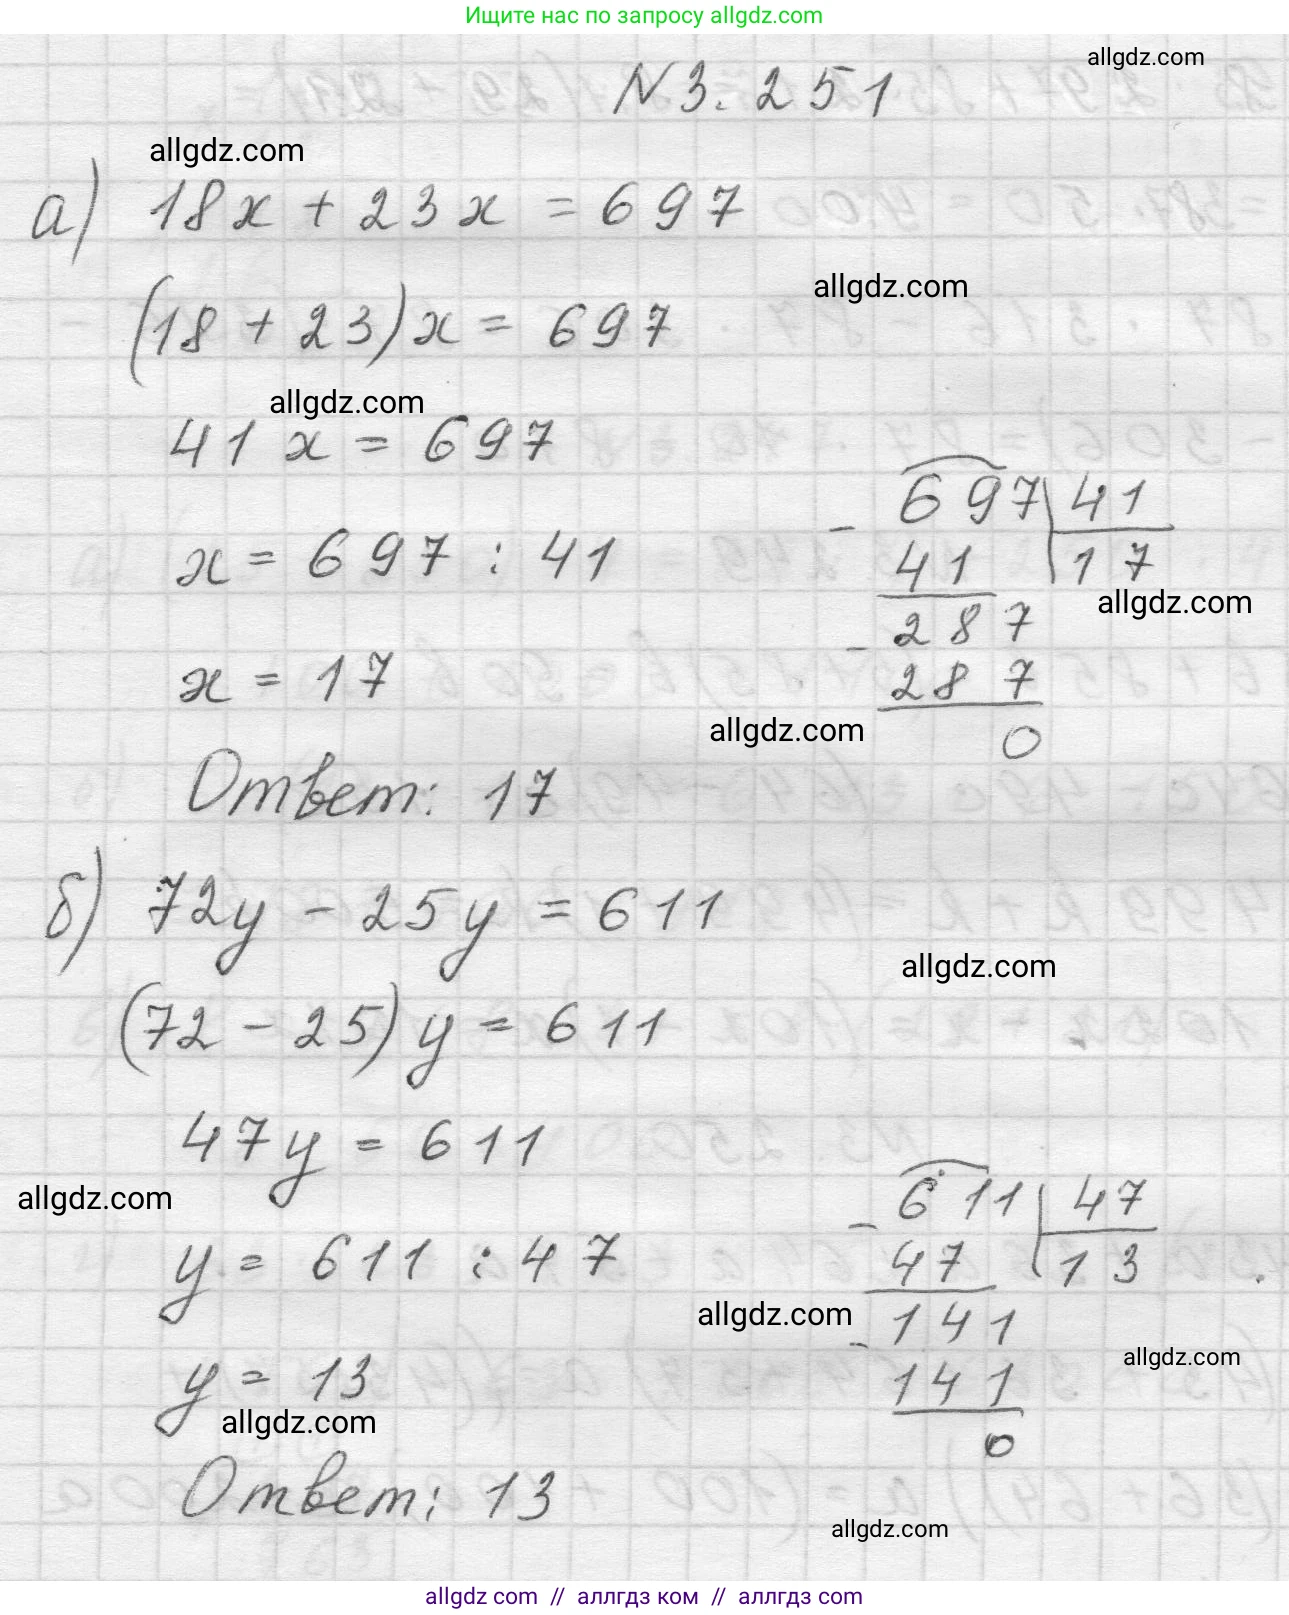 Ищите нас по запросу allgdz.com
allgdz.com
N 3.251
allgdz.com
а) 18x + 23x = 697
allgdz.com
(18 + 23)x = 697
allgdz.com
41x = 697
x = 697 : 41
x = 17
- 697 | 41
41 | 17
allgdz.com
- 287
287
allgdz.com
0
Ответ: 17
б) 72y - 25y = 611
allgdz.com
(72 - 25)y = 611
47y = 611
allgdz.com
y = 611 : 47
y = 13
- 611 | 47
47 | 13
allgdz.com
- 141
allgdz.com
141
0
allgdz.com
Ответ: 13
allgdz.com
allgdz.com // аллгдз ком // аллгдз.com